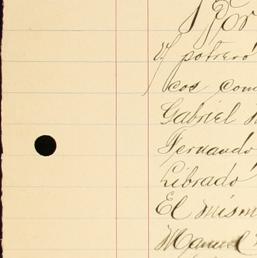 Por
y potreró
cos com
Gabriel
Fernando
Librado
El mism
Manuel